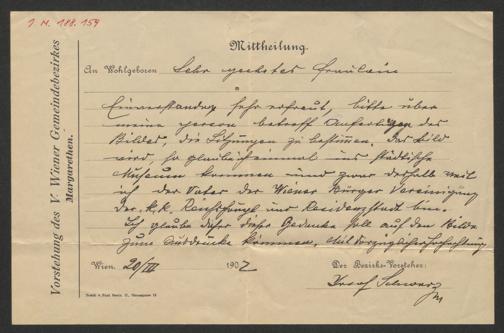 J. N. 188.159
Vorstehung des V. Wiener Gemeindebezirkes
Margarethen.
Mittheilung.
An Wohlgeboren Sehr geehrtes Fräulein
Einverstanden sehr erfreut, bitte über
meine person betreff Anfertigen des
Bildes, die Sitzungen zu bestimmen. Das Bild
wird, so glaublich einmal ins städtische
Museum kommen und zwar deshalb weil
ich der Vater der Wiener Bürger Vereinigung
der k. k. Reichshaupt und Residenzstadt bin.
Ich glaube daher dieser Gedanke soll auf dem Bilde
zum Ausdrucke kommen. Mit vorzüglicher Hochachtung
Wien, 20/III 1902
Der Bezirks-Vorsteher:
Josef Schwarz